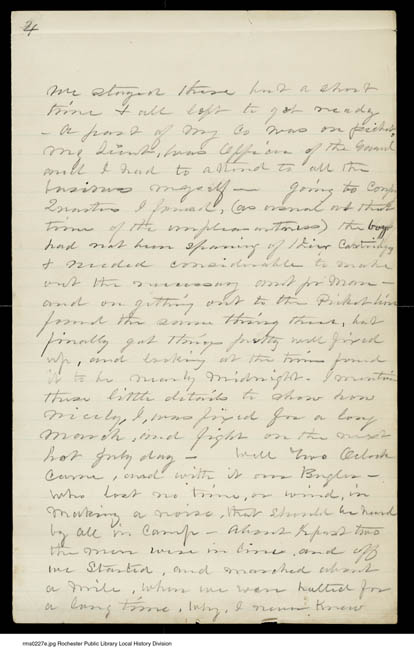 4
We stayed there but a short
time & all left to get ready
- A part of my Co was on picket,
my Lieut, was Officer of the Guard
and I had to attend to all the
business myself - going to Comp
Quarters I found, (as usual at that
time of the unpleasantness) the boys
had not been sparing of their Cartridges
& needed considerable to make
out the necessary amt pr Man -
and on getting out to the Picket line
found the same thing there, but
finally got things pretty well fixed
up, and looking at the time found
it to be nearly Midnight. I mention
these little details to show how
nicely, I, was fixed for a long
March, and fight on the next
hot July day - Well Two Oclock
Came, and with it our Bugler -
Who lost no time, or wind, in
making a noise, that should be heard
by all in Camp - About ½ past two
the men were in line, and off
we Started, and marched about
a mile, when we were halted for
a long time, Why, I never Knew
rms0227e.jpg Rochester Public Library Local History Division